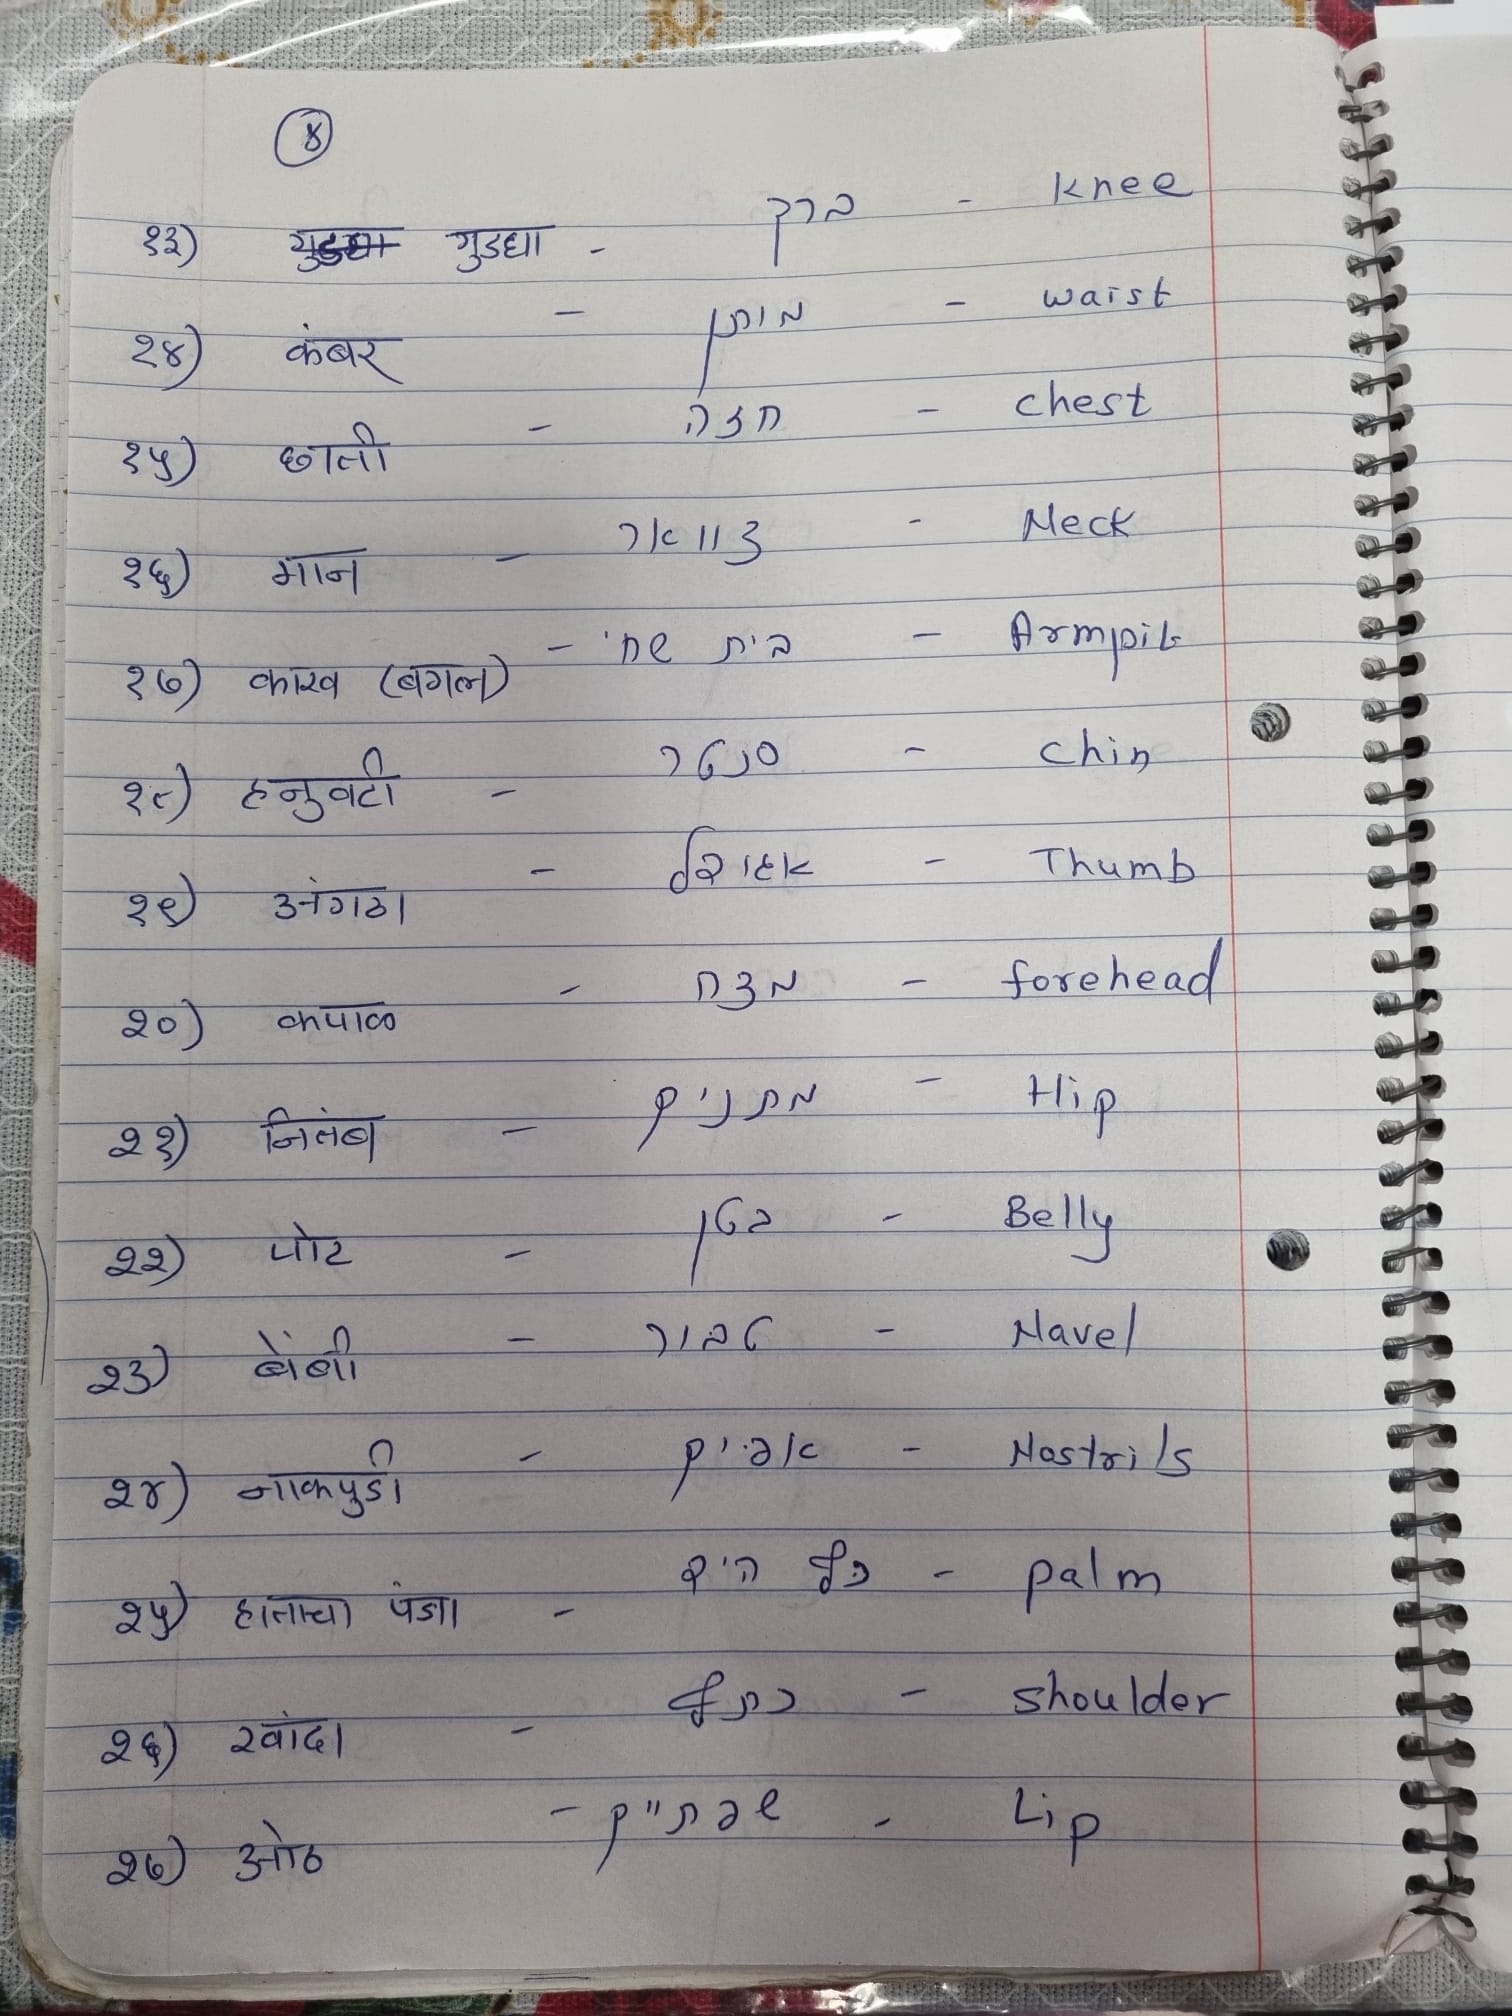 ४
१३) गुडघा - ברך - knee
१४) कंबर - מותן - waist
१५) छाती - חזה - chest
१६) मान - צוואר - Neck
१७) काख (बगल) - בית שחי - Armpit
१८) हनुवटी - סנטר - chin
१९) अंगठा - אגודל - Thumb
२०) कपाळ - מצח - forehead
२१) नितंब - מתניים - Hip
२२) पोट - בטן - Belly
२३) बेंबी - טבור - Navel
२४) नाकपुडी - - Nostrils
२५) हाताचा पंजा - כף היד - palm
२६) खांदा - כתף - shoulder
२७) ओठ - שפתיים - Lip